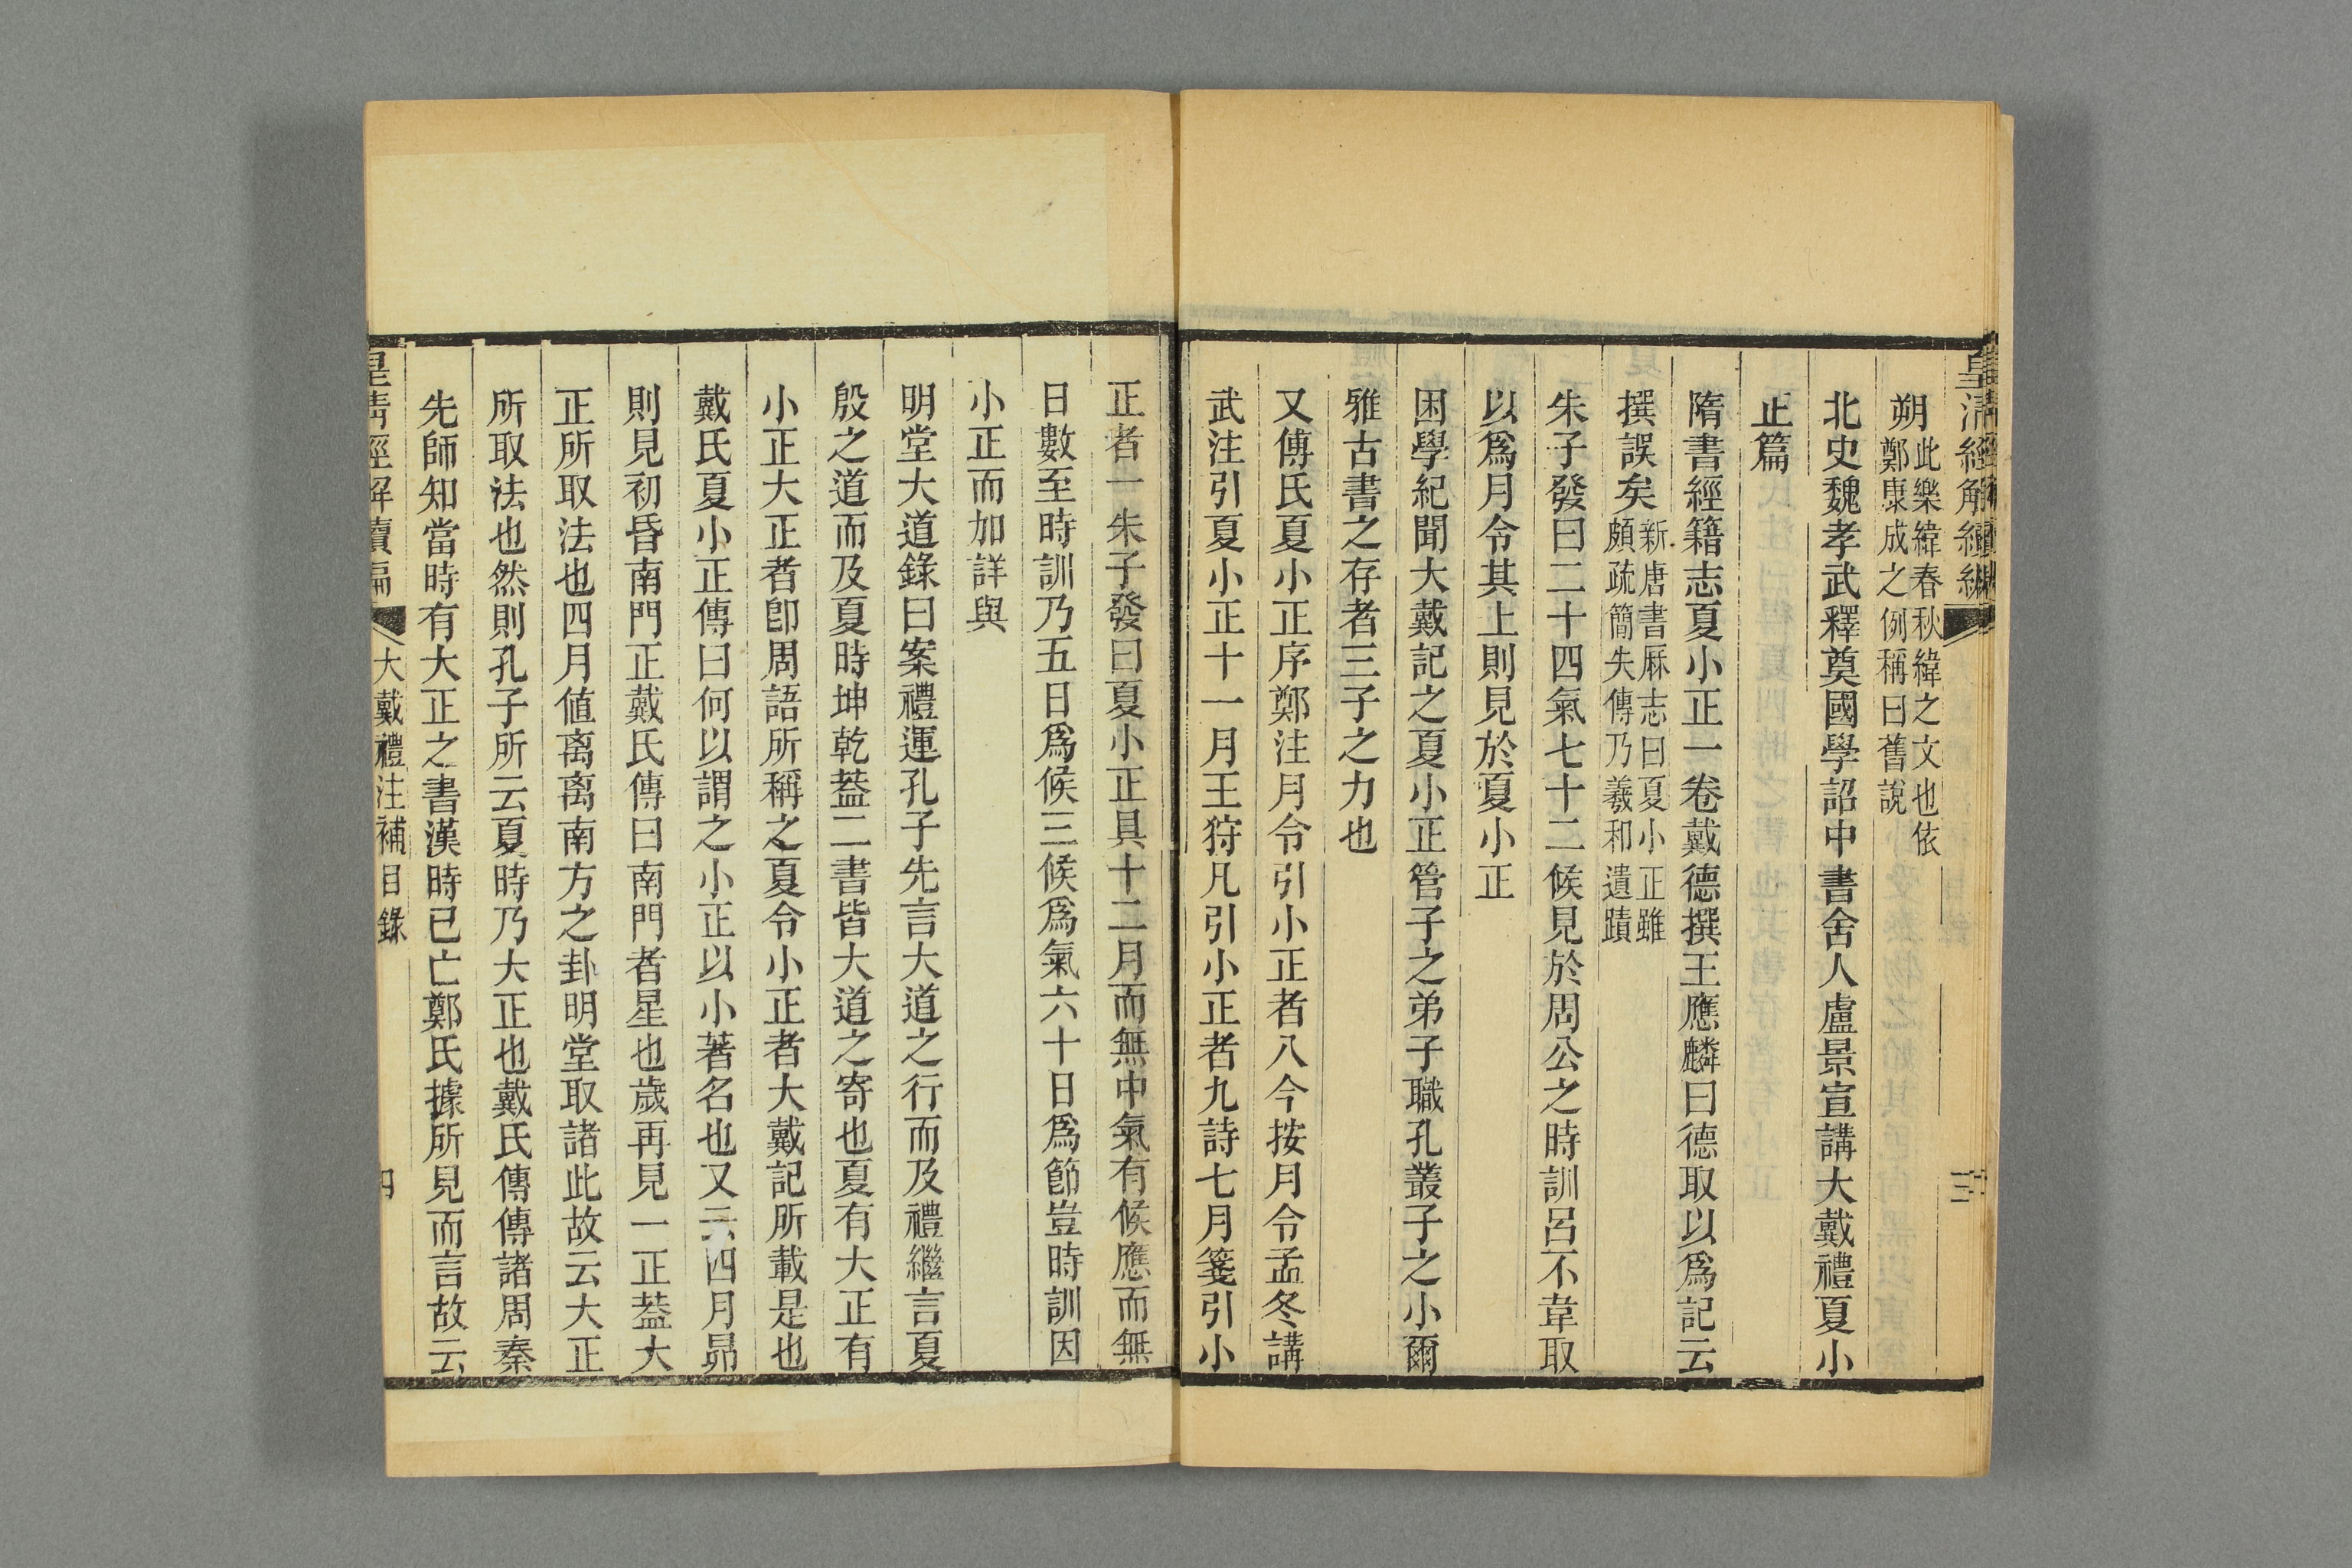 皇清經解續編
三
朔此樂緯春秋緯之文也依
鄭康成之例稱曰舊說
北史魏孝武釋奠國學詔中書舍人盧景宣講大戴禮夏小
正篇
隋書經籍志夏小正一卷戴德撰王應麟曰德取以爲記云
撰誤矣新唐書厤志曰夏小正雖
頗疏簡失傳乃羲和遺蹟
朱子發曰二十四氣七十二候見於周公之時訓呂不韋取
以爲月令其上則見於夏小正
困學紀聞大戴記之夏小正管子之弟子職孔叢子之小爾
雅古書之存者三子之力也
又傅氏夏小正序鄭注月令引小正者八今按月令孟冬講
武注引夏小正十一月王狩凡引小正者九詩七月箋引小
正者一朱子發曰夏小正具十二月而無中氣有候應而無
日數至時訓乃五日爲候三候爲氣六十日爲節豈時訓因
小正而加詳與
明堂大道錄曰案禮運孔子先言大道之行而及禮繼言夏
殷之道而及夏時坤乾葢二書皆大道之寄也夏有大正有
小正大正者卽周語所稱之夏令小正者大戴記所載是也
戴氏夏小正傳曰何以謂之小正以小著名也又云四月昴
則見初昏南門正戴氏傳曰南門者星也歲再見一正葢大
正所取法也四月値离离南方之卦明堂取諸此故云大正
所取法也然則孔子所云夏時乃大正也戴氏傳傳諸周秦
先師知當時有大正之書漢時已亡鄭氏據所見而言故云
皇清經解續編
大戴禮注補目錄
四